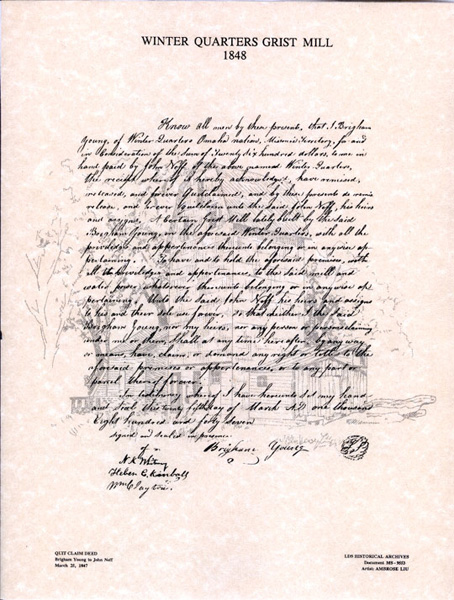 WINTER QUARTERS GRIST MILL
1848
Know all men by these presents, that I Brigham
Young, of Winter Quarters Omaha nation, Missouri Territory, for and
in Consideration of the Sum of Twenty Six hundred dollars, to me in
hand paid by John Neff of the above named Winter Quarters,
the receipt whereof is hereby acknowledged, have remised,
released, and forever Quitclaimed, and by these presents do remise
release, and forever Quitclaim unto the said John Neff, his heirs
and assigns, A Certain Grist Mill lately built by the said
Brigham Young, on the aforesaid Winter Quarters, with all the
priviledges and appertenances thereunto belonging or in anywise ap-
pertaining. To have and to hold the aforesaid premises, with
all the priviledges and appertenances, to the said mill and
water power, whatsoever thereunto belonging or in anywise ap-
pertaining, Unto the said John Neff his heirs and assigns
to his and their sole use forever, so that neither I the said
Brigham Young, nor my heirs, nor any person or persons claiming
under me or them, Shall at any time hereafter, by any way
or means, have, claim, or demand any right or title to the
aforesaid premises or appertenances, or to any part or
parcel thereof forever.
In testimony whereof I have hereunto set my hand
and seal this twenty fifth day of March A.D. one thousand
Eight hundred and forty seven
signed and sealed in presence
of
Brigham Young
N. K. Whitney
Heber C. Kimball
Wm Clayton.
QUIT CLAIM DEED
Brigham Young to John Neff
March 25, 1847
LDS HISTORICAL ARCHIVES
Artist: AMBROSE LIU